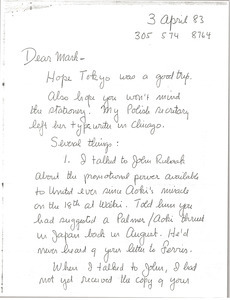 3 April 83
305 574 8764
Dear Mark -
Hope Tokyo was a good trip.
Also hope you won't mind
the stationery. My Polish secretary
left her typewriter in Chicago.
Several things:
1. I talked to John
about the promotional power available
to United ever since Aoki's miracle
on the 18th at Waikiki. Told him you
had suggested a Palmer/Aoki thrust
in Japan back in August. He'd
never heard of your letter to Ferris.
When I talked to John, I had
not yet received the copy of your